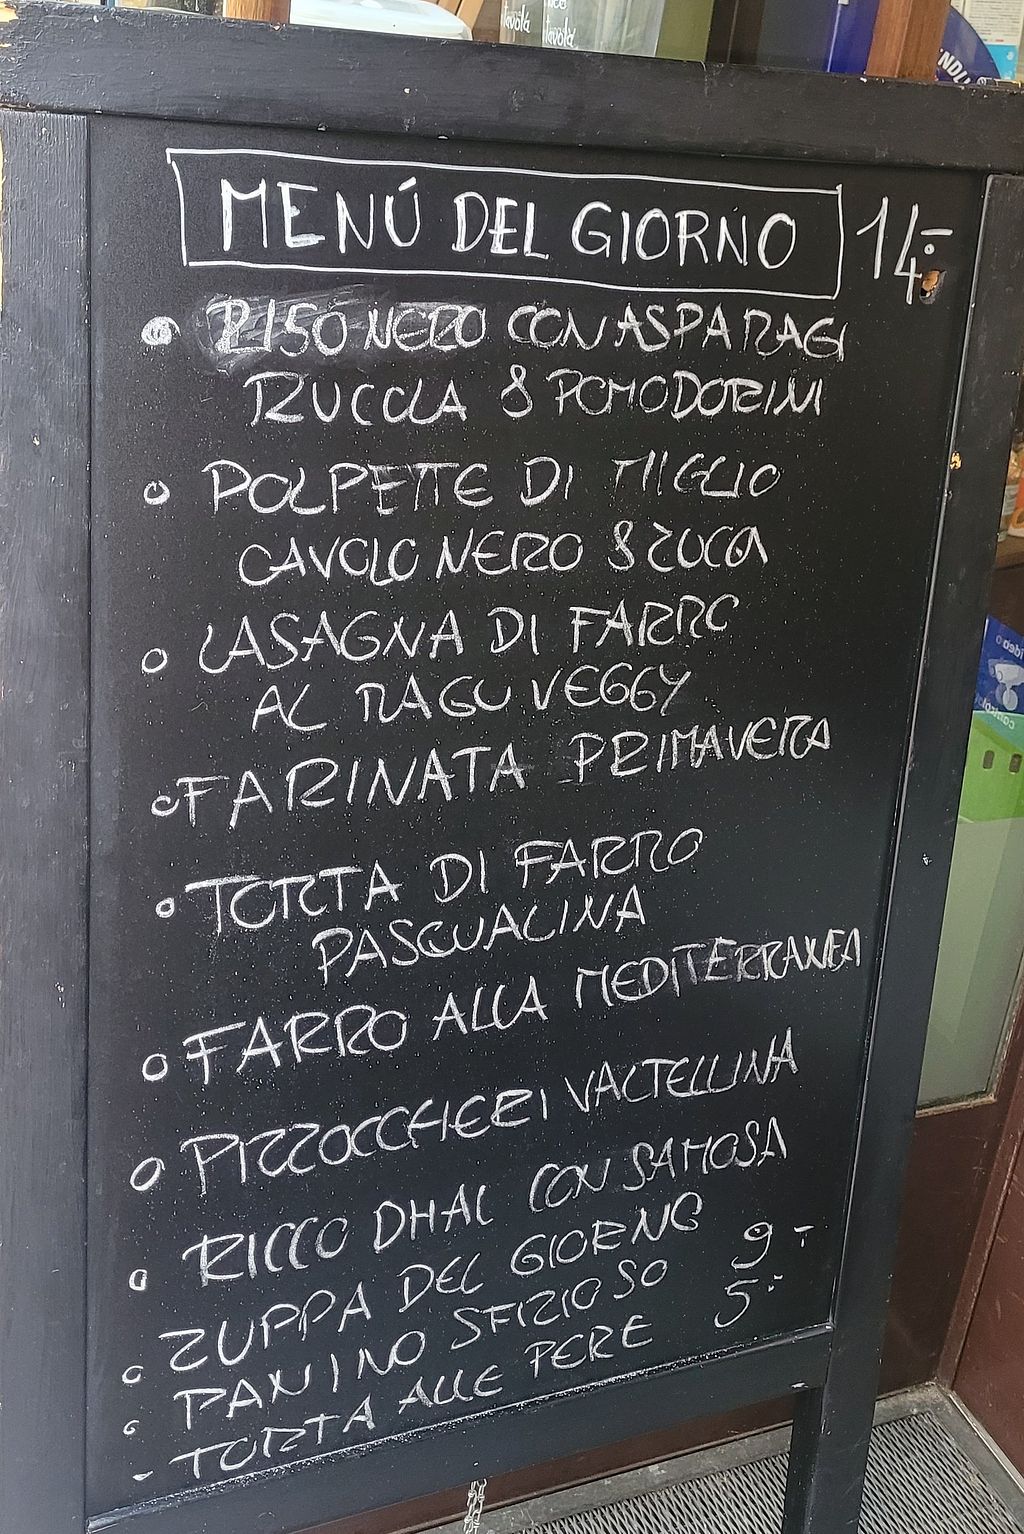 tavola tavola
NDU
MENÚ DEL GIORNO 14.-
RISO NERO CON ASPARAGI
RUCOLA & POMODORINI
POLPETTE DI MIGLIO
CAVOLO NERO & ZUCCA
LASAGNA DI FARRO
AL RAGU VEGGY
FARINATA PRIMAVERA
TORTA DI FARRO
PASQUALINA
FARRO ALLA MEDITERRANEA
PIZZOCCHERI VALTELLINA
RICCO DHAL CON SAMOSA
ZUPPA DEL GIORNO 9.-
PANINO SFIZIOSO 5.-
TORTA ALLE PERE